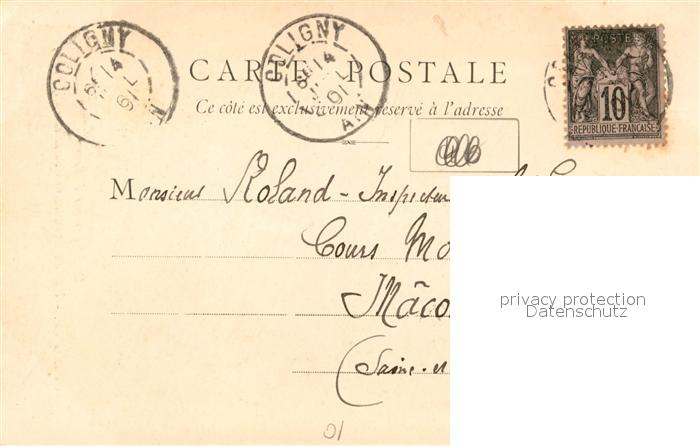 COLIGNY
COLIGNY
14
14
CARTE POSTALE
Ce côté est exclusivement réservé à l'adresse
POSTE
10
RÉPUBLIQUE FRANÇAISE
Monsieur Roland - Inspecteur
Cours Mo
Mâco
(Saône-et
privacy protection
Datenschutz
01